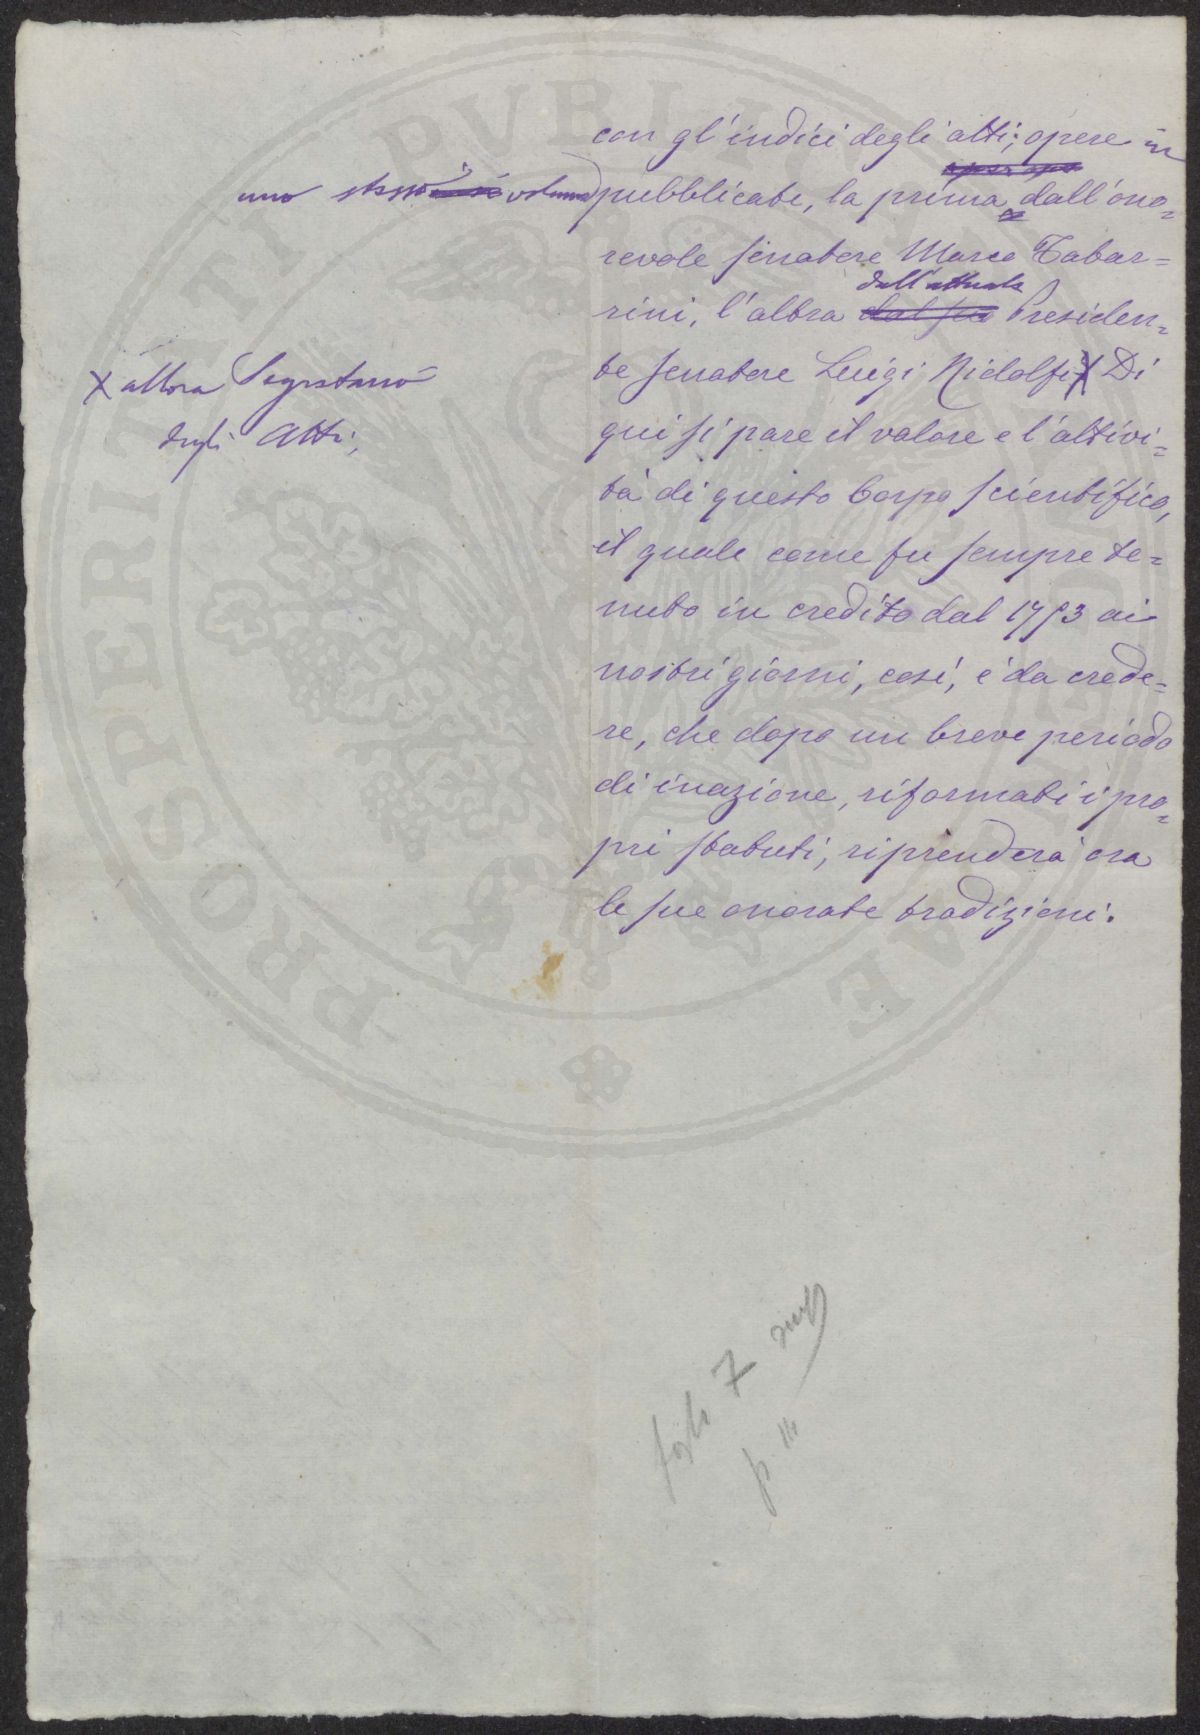 con gl'indici degli atti; opere in
uno stesso volume pubblicate, la prima dall'ono=
revole senatore Marco Tabar=
rini, l'altra dall'attuale Presiden=
te senatore Luigi Ridolfi X Di
X allora Segretario
degli Atti,
qui si pare il valore e l'attivi=
tà di questo Corpo scientifico,
il quale come fu sempre te=
nuto in credito dal 1753 ai
nostri giorni, così, è da crede=
re, che dopo un breve periodo
di inazione, riformati i pro=
pri statuti, riprenderà ora
le sue onorate tradizioni.
fogli 7
p. 14
PROSPERITATI PUBLICAE